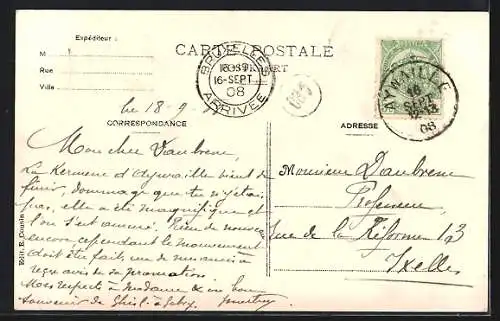 Expéditeur :
CARTE POSTALE
M
Rue
Ville
BRUXELLES
16-SEPT
08
ARRIVEE
AYWAILLE
16
SEPT
08
le 18-9-
CORRESPONDANCE
ADRESSE
Mon cher Daubresse
La Kermesse d'Aywaille vient de
finir, dommage que tu n'y étais
pas, elle a été magnifique et
l'on s'est amusé. Rien de nouveau
encore cependant le mouvement
doit être fait,
Mes respects à Madame & un bon
souvenir de
Monsieur Daubresse
Professeur
rue de la Réforme 13
Ixelles
Edit. E.